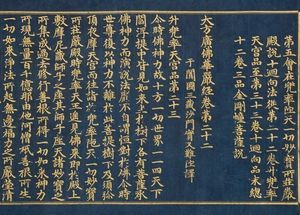 第五會在兜率天一切妙寶所莊嚴
殿說十迴向法從第二十二卷升兜率
天宮品至第二十三卷十迴向品末總
十二卷三品金剛幢菩薩說
大方廣佛華嚴經卷第二十二
于闐國三藏沙門實叉難陀譯
升兜率天宮品第二十三
爾時佛神力故十方一切世界一一四天下
閻浮提中皆見如來坐於樹下各有菩薩承
佛神力而演說法靡不自謂恒對於佛爾時
世尊復以神力不離於此菩提樹下及須彌
頂夜摩天宮而往詣於兜率陀天一切妙寶
所莊嚴殿時兜率天王遙見佛來即於殿上
敷摩尼藏師子之座其師子座天諸妙寶之
所集成過去修行善根所得一切如來神力
所現無量百千億那由他阿僧祇善根所生
一切如來淨法所起無邊福力之所嚴瑩清